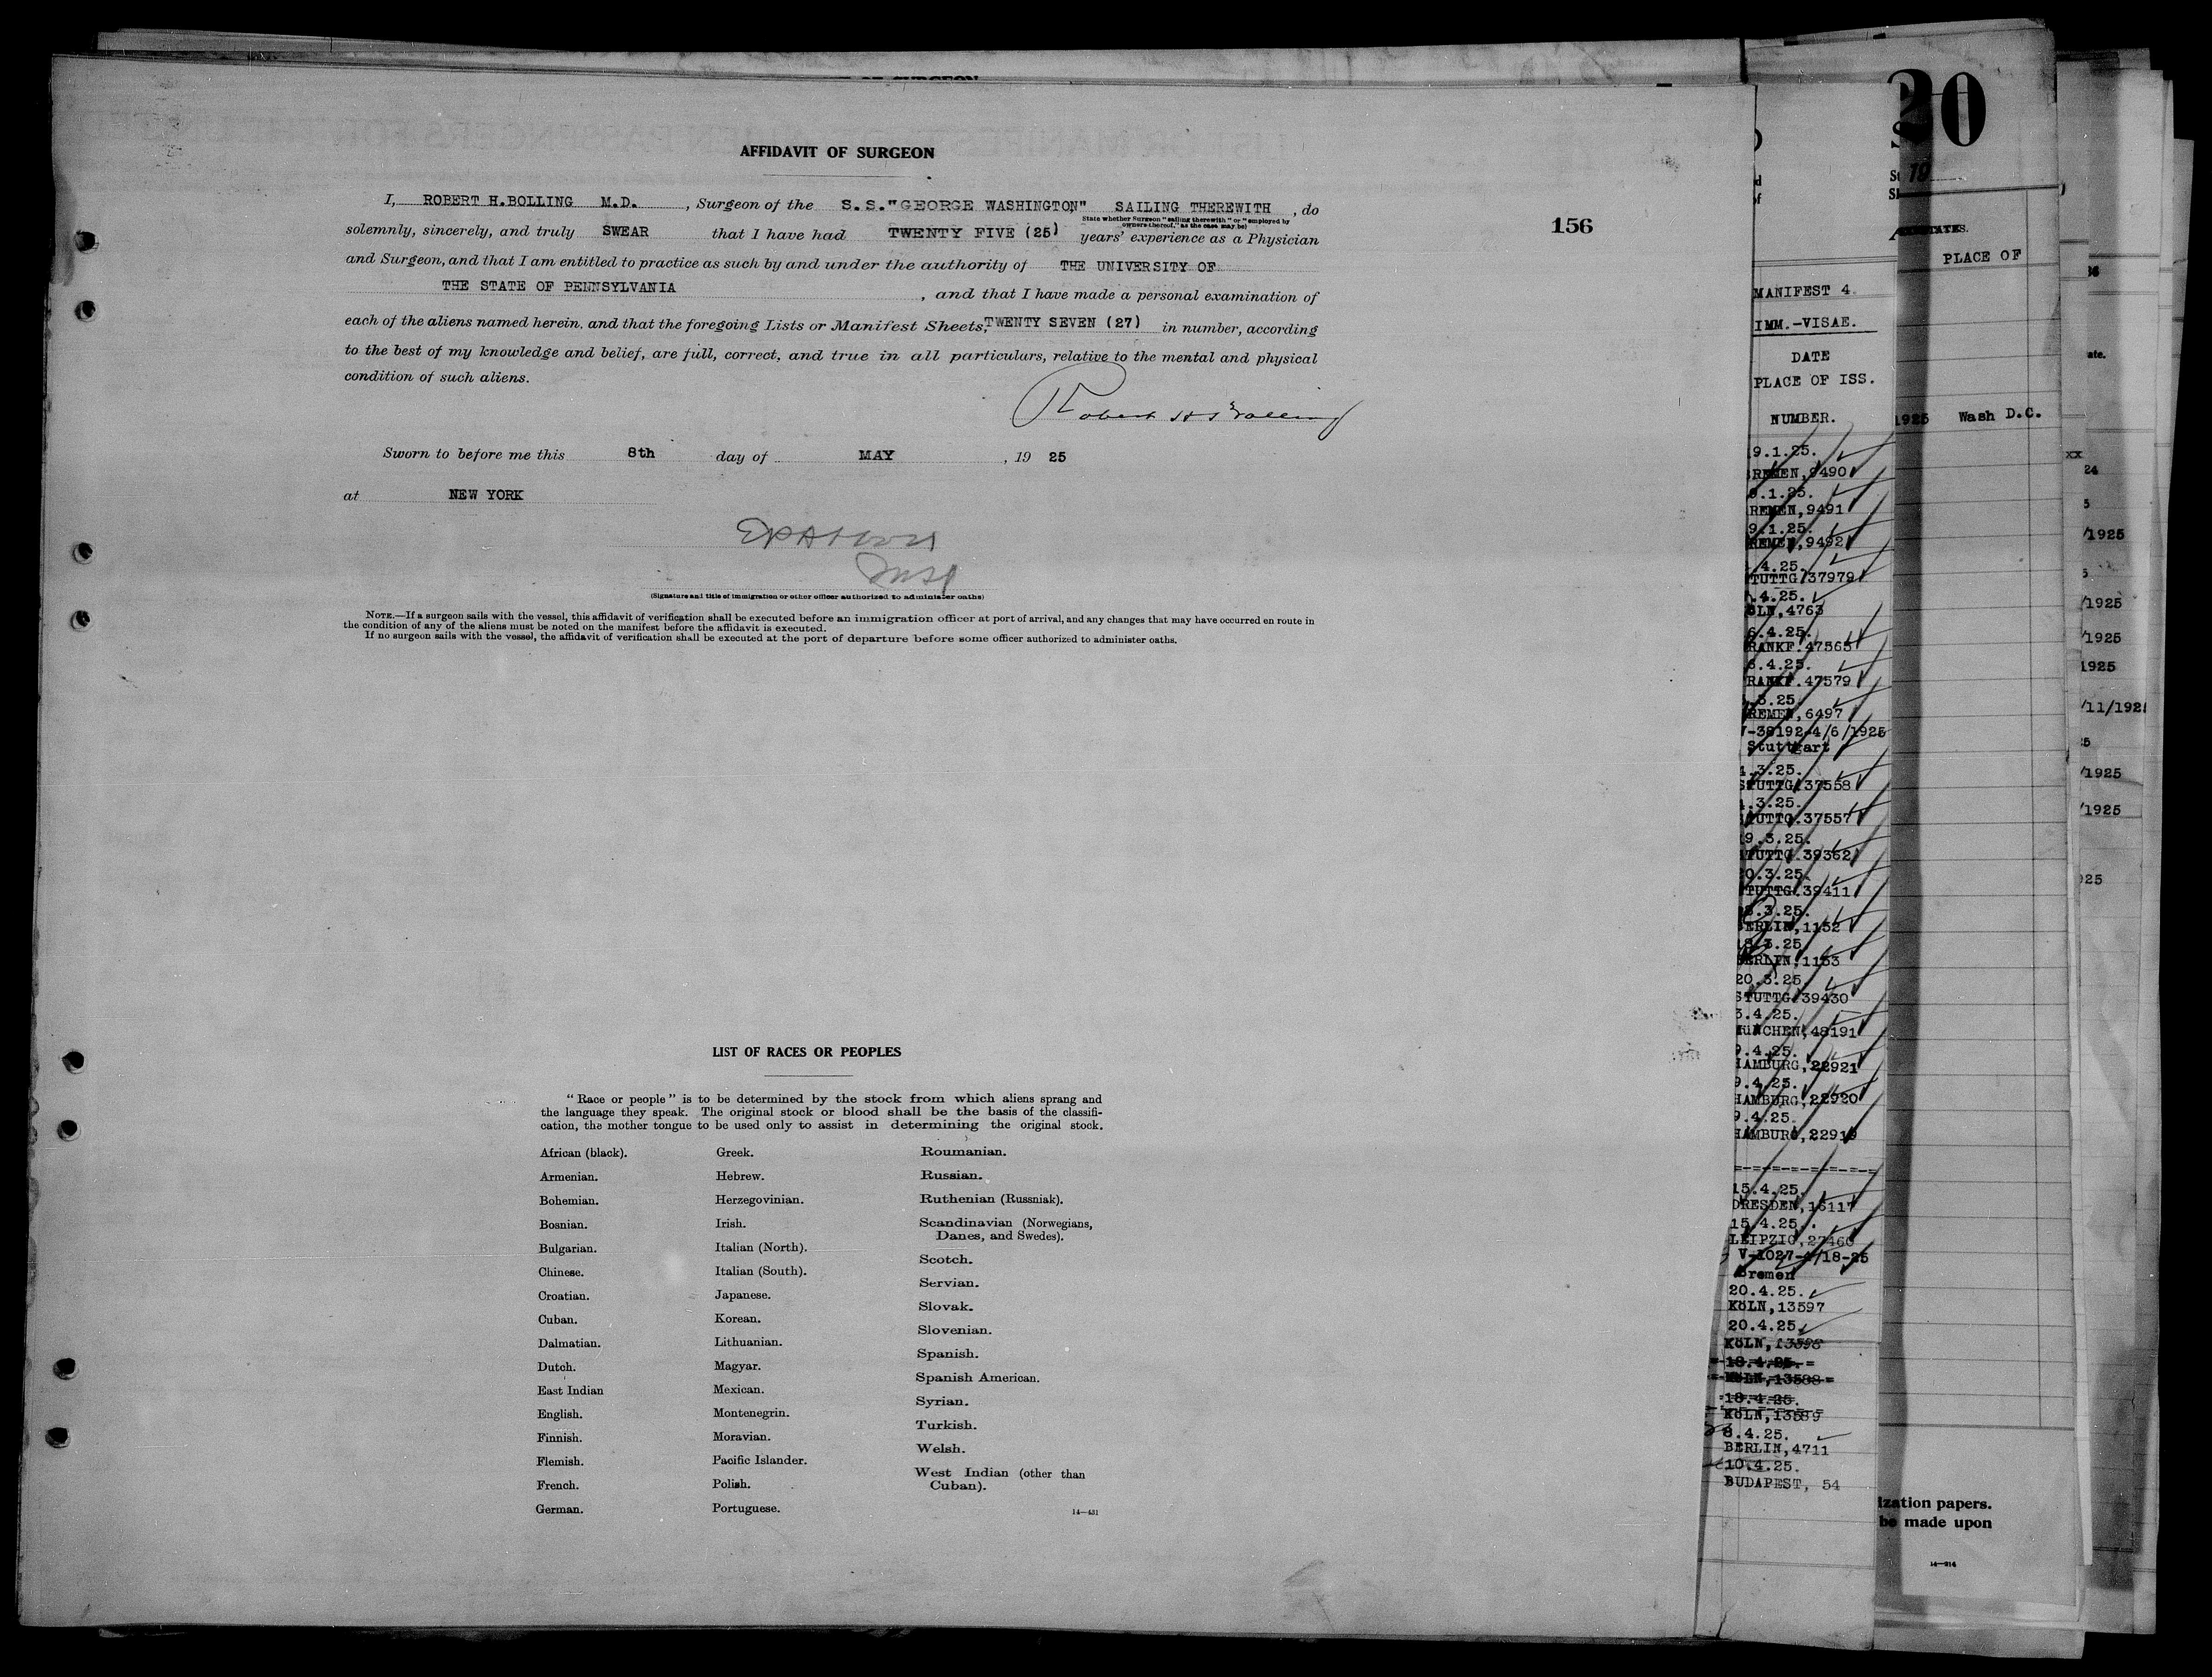 AFFIDAVIT OF SURGEON
I, ROBERT H.BOLLING M.D. , Surgeon of the S.S."GEORGE WASHINGTON" SAILING THEREWITH , do
State whether Surgeon "sailing therewith" or "employed by
owners thereof," as the case may be)
solemnly, sincerely, and truly SWEAR that I have had TWENTY FIVE (25) years' experience as a Physician
and Surgeon, and that I am entitled to practice as such by and under the authority of THE UNIVERSITY OF
THE STATE OF PENNSYLVANIA , and that I have made a personal examination of
each of the aliens named herein, and that the foregoing Lists or Manifest Sheets, TWENTY SEVEN (27) in number, according
to the best of my knowledge and belief, are full, correct, and true in all particulars, relative to the mental and physical
condition of such aliens.
Robert H Bolling
Sworn to before me this 8th day of MAY , 19 25
at NEW YORK
Insp
(Signature and title of immigration or other officer authorized to administer oaths)
NOTE.—If a surgeon sails with the vessel, this affidavit of verification shall be executed before an immigration officer at port of arrival, and any changes that may have occurred en route in
the condition of any of the aliens must be noted on the manifest before the affidavit is executed.
If no surgeon sails with the vessel, the affidavit of verification shall be executed at the port of departure before some officer authorized to administer oaths.
156
LIST OF RACES OR PEOPLES
"Race or people" is to be determined by the stock from which aliens sprang and
the language they speak. The original stock or blood shall be the basis of the classifi-
cation, the mother tongue to be used only to assist in determining the original stock.
African (black).
Armenian.
Bohemian.
Bosnian.
Bulgarian.
Chinese.
Croatian.
Cuban.
Dalmatian.
Dutch.
East Indian
English.
Finnish.
Flemish.
French.
German.
Greek.
Hebrew.
Herzegovinian.
Irish.
Italian (North).
Italian (South).
Japanese.
Korean.
Lithuanian.
Magyar.
Mexican.
Montenegrin.
Moravian.
Pacific Islander.
Polish.
Portuguese.
Roumanian.
Russian.
Ruthenian (Russniak).
Scandinavian (Norwegians,
Danes, and Swedes).
Scotch.
Servian.
Slovak.
Slovenian.
Spanish.
Spanish American.
Syrian.
Turkish.
Welsh.
West Indian (other than
Cuban).
14—431
MANIFEST 4
IMM.-VISAE.
DATE
PLACE OF ISS.
NUMBER.
9.1.25.
REMEN,9490
9.1.25.
REMEN,9491
9.1.25.
REMEN,9492
.4.25.
TUTTG.37979
.4.25.
ÖLN,4763
6.4.25.
RANKF.47565
6.4.25.
RANKF.47579
.3.25.
REMEN,6497
V-38192-4/6/1925
Stuttgart
.3.25.
STUTTG.37558
.3.25.
STUTTG.37557
9.3.25.
TUTTG.39362
20.3.25.
TUTTG.39411
.3.25.
BERLIN,1152
.3.25
BERLIN,1153
20.3.25.
STUTTG.39430
3.4.25.
MüNCHEN,48191
9.4.25.
HAMBURG,22921
9.4.25.
HAMBURG,22920
9.4.25.
HAMBURG,22919
15.4.25.
DRESDEN,16117
15.4.25.
LEIPZIG,27460
V-1027-4/18-25
Bremen
20.4.25.
KöLN,13597
20.4.25.
KöLN,13598
18.4.25.
KöLN,13588
18.4.25.
KöLN,13589
8.4.25.
BERLIN,4711
10.4.25.
BUDAPEST, 54
20
19
PLACE OF
1925 Wash D.C.
ization papers.
be made upon
14—214
ate.
xx
24
/1925
/1925
/1925
1925
/11/192
/1925
/1925
25